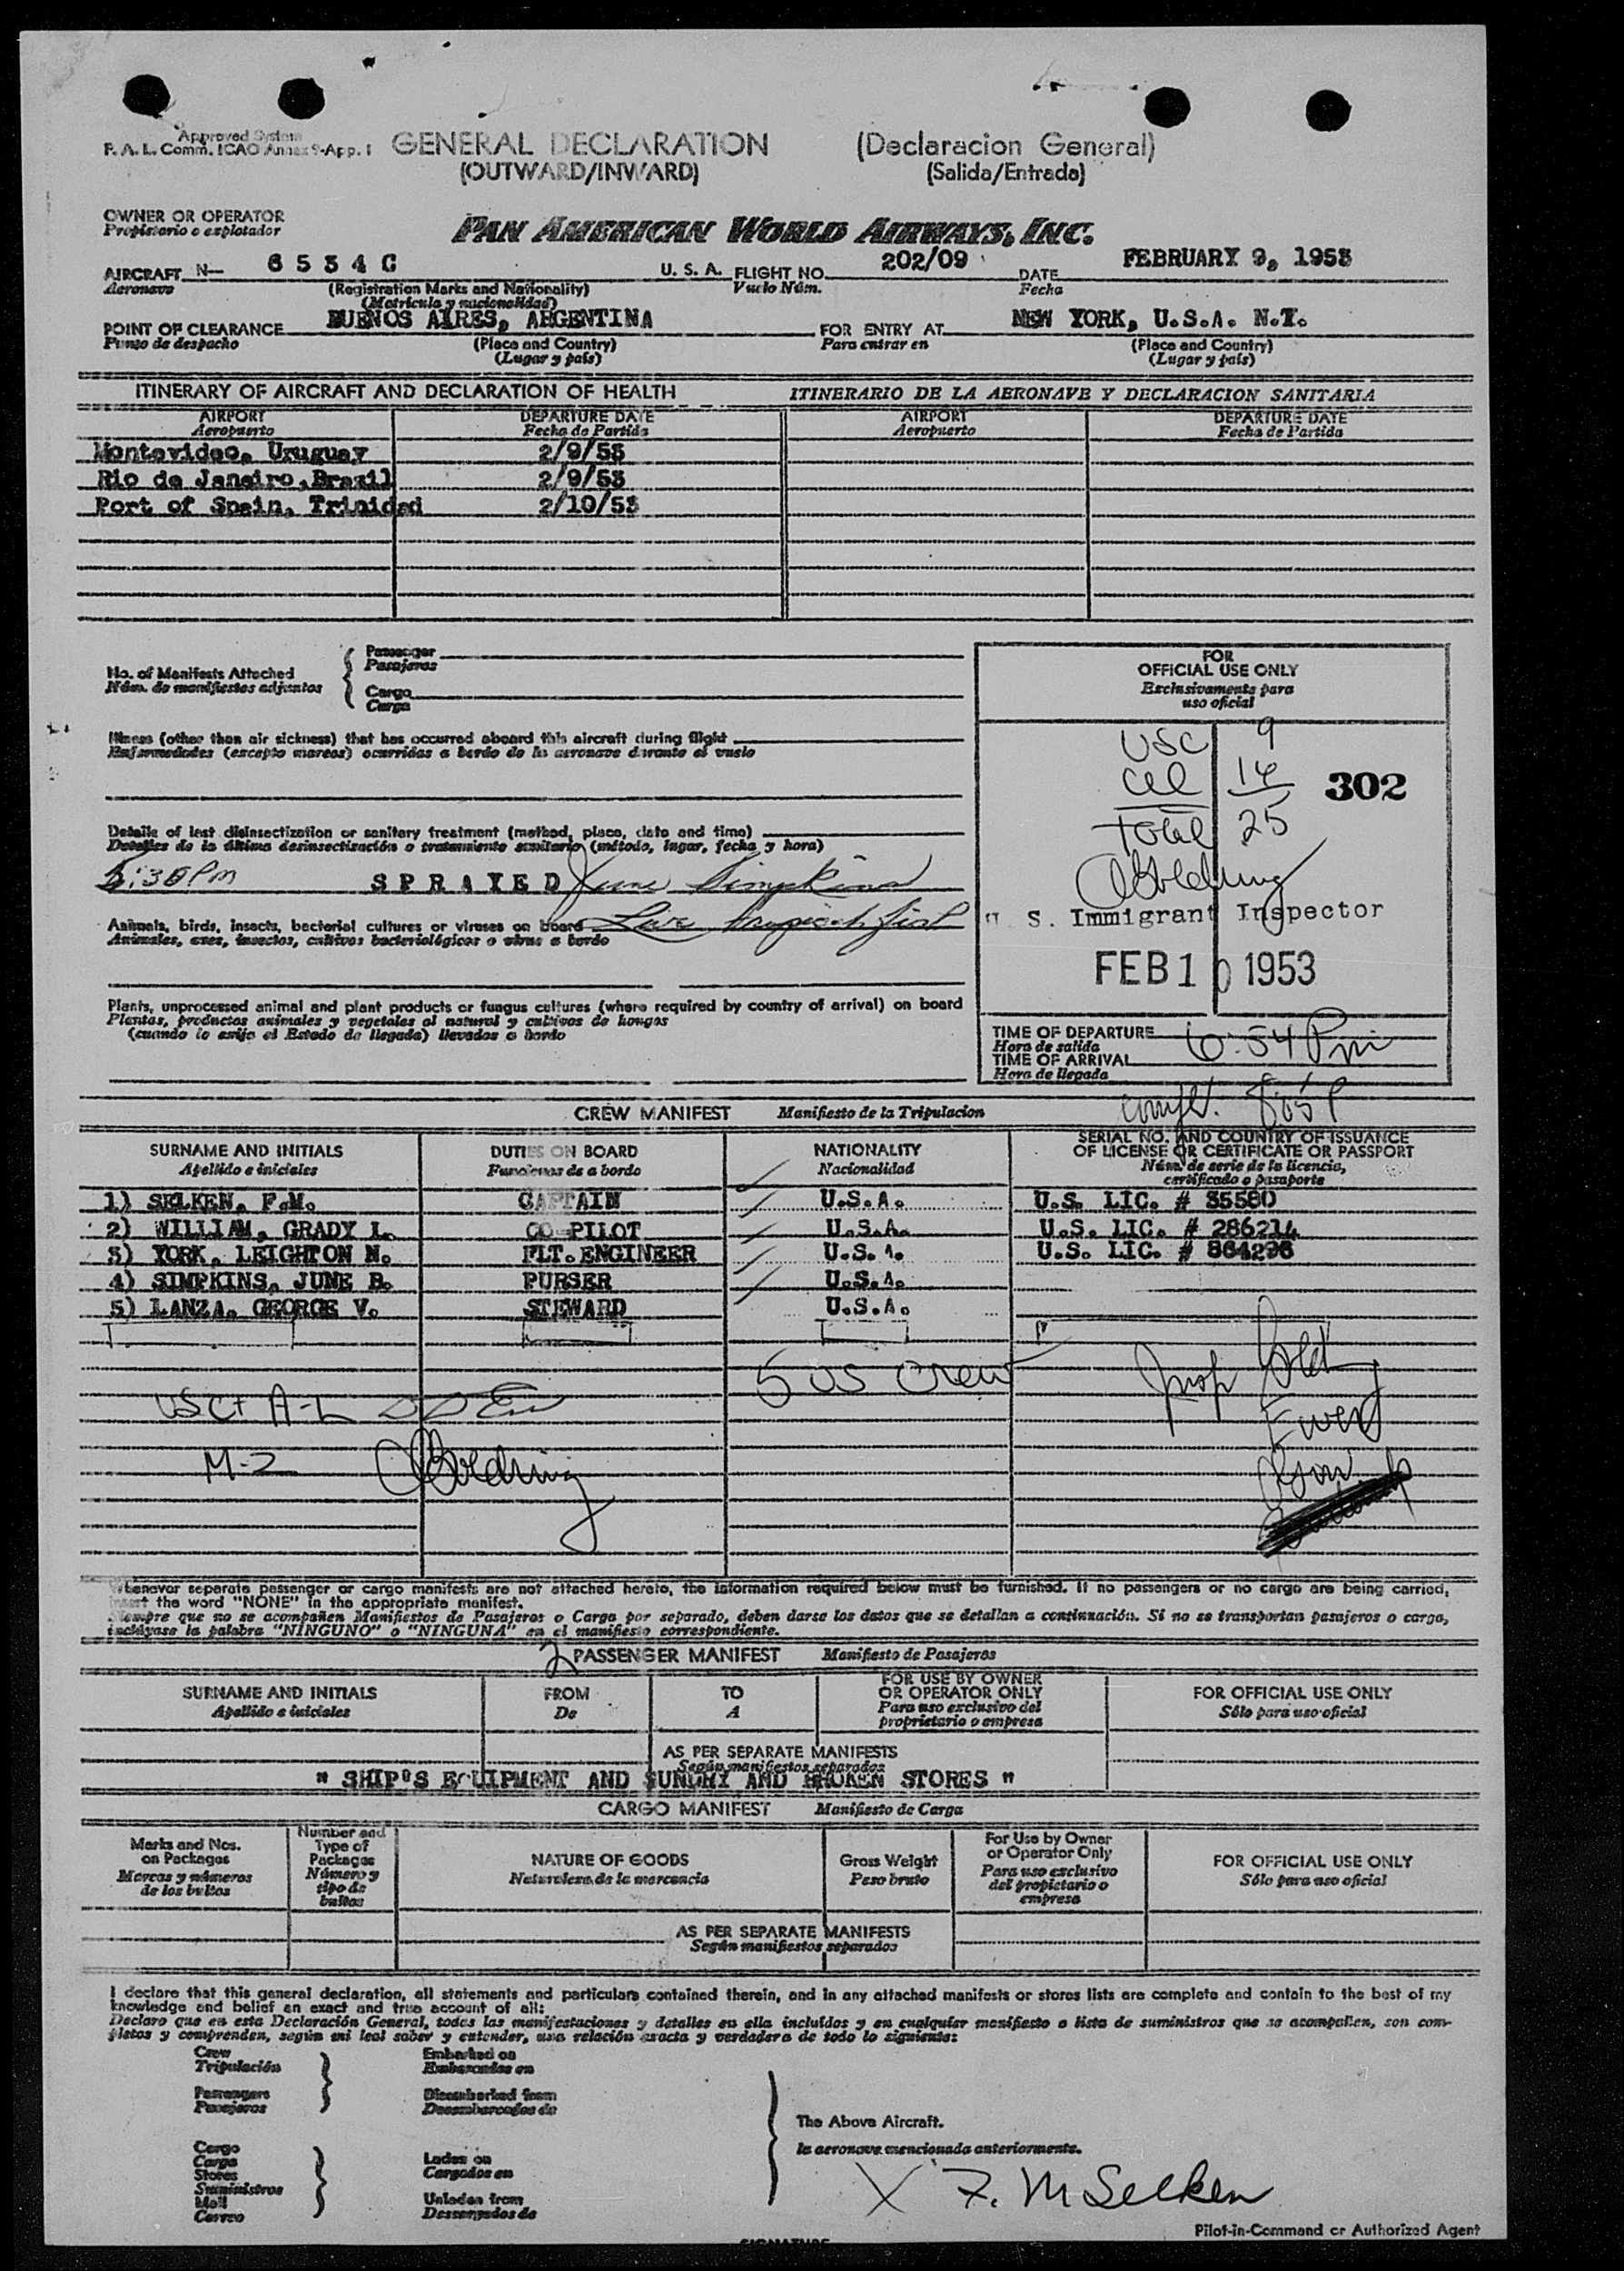 Approved System
F. A. L. Comm. ICAO Annex 9-App. 1
GENERAL DECLARATION (Declaracion General)
(OUTWARD/INWARD) (Salida/Entrada)
OWNER OR OPERATOR
Propietario o explotador
PAN AMERICAN WORLD AIRWAYS, INC.
AIRCRAFT N— 6 5 3 4 C U. S. A. FLIGHT NO. 202/09 DATE FEBRUARY 9, 1953
Aeronave (Registration Marks and Nationality) Vuelo Núm. Fecha
(Matrícula y nacionalidad)
POINT OF CLEARANCE BUENOS AIRES, ARGENTINA FOR ENTRY AT NEW YORK, U.S.A. N.Y.
Punto de despacho (Place and Country) Para entrar en (Place and Country)
(Lugar y país) (Lugar y país)
ITINERARY OF AIRCRAFT AND DECLARATION OF HEALTH ITINERARIO DE LA AERONAVE Y DECLARACION SANITARIA
AIRPORT DEPARTURE DATE AIRPORT DEPARTURE DATE
Aeropuerto Fecha de Partida Aeropuerto Fecha de Partida
Montevideo, Uruguay 2/9/53
Rio de Janeiro, Brazil 2/9/53
Port of Spain, Trinidad 2/10/53
No. of Manifests Attached
Núm. de manifiestos adjuntos
Passenger
Pasajeros
Cargo
Carga
Illness (other than air sickness) that has occurred aboard this aircraft during flight
Enfermedades (excepto mareos) ocurridas a bordo de la aeronave durante el vuelo
Details of last disinsectization or sanitary treatment (method, place, date and time)
Detalles de la última desinsectización o tratamiento sanitario (método, lugar, fecha y hora)
5:30 Pm SPRAYED June Simpkins
Animals, birds, insects, bacterial cultures or viruses on board Live tropical fish
Animales, aves, insectos, cultivos bacteriológicos o virus a bordo
Plants, unprocessed animal and plant products or fungus cultures (where required by country of arrival) on board
Plantas, productos animales y vegetales al natural y cultivos de hongos
(cuando lo exija el Estado de llegada) llevados a bordo
FOR
OFFICIAL USE ONLY
Exclusivamente para
uso oficial
USC 9
ael 16
302
Total 25
U. S. Immigrant Inspector
FEB 10 1953
TIME OF DEPARTURE
Hora de salida
6:54 Pm
TIME OF ARRIVAL
Hora de llegada
8:05 P
CREW MANIFEST Manifiesto de la Tripulacion
SURNAME AND INITIALS DUTIES ON BOARD NATIONALITY SERIAL NO. AND COUNTRY OF ISSUANCE
OF LICENSE OR CERTIFICATE OR PASSPORT
Apellido e iniciales Funciones de a bordo Nacionalidad Núm. de serie de la licencia,
certificado o pasaporte
1) SELKEN, F.M. CAPTAIN U.S.A. U.S. LIC. # 35580
2) WILLIAM, GRADY L. CO-PILOT U.S.A. U.S. LIC. # 286214
3) YORK, LEIGHTON N. FLT. ENGINEER U.S.A. U.S. LIC. # 864296
4) SIMPKINS, JUNE B. PURSER U.S.A.
5) LANZA, GEORGE V. STEWARD U.S.A.
5 US Crew
USC + A-L
M-2
Whenever separate passenger or cargo manifests are not attached hereto, the information required below must be furnished. If no passengers or no cargo are being carried,
insert the word "NONE" in the appropriate manifest.
Siempre que no se acompañen Manifiestos de Pasajeros o Carga por separado, deben darse los datos que se detallan a continuación. Si no se transportan pasajeros o carga,
inclúyase la palabra "NINGUNO" o "NINGUNA" en el manifiesto correspondiente.
2 PASSENGER MANIFEST Manifiesto de Pasajeros
SURNAME AND INITIALS FROM TO FOR USE BY OWNER
OR OPERATOR ONLY FOR OFFICIAL USE ONLY
Apellido e iniciales De A Para uso exclusivo del
propietario o empresa Sólo para uso oficial
AS PER SEPARATE MANIFESTS
Según manifiestos separados
" SHIP'S EQUIPMENT AND SUNDRY AND BROKEN STORES "
CARGO MANIFEST Manifiesto de Carga
Marks and Nos.
on Packages
Marcas y números
de los bultos
Number and
Type of
Packages
Número y
tipo de
bultos
NATURE OF GOODS
Naturaleza de la mercancía
Gross Weight
Peso bruto
For Use by Owner
or Operator Only
Para uso exclusivo
del propietario o
empresa
FOR OFFICIAL USE ONLY
Sólo para uso oficial
AS PER SEPARATE MANIFESTS
Según manifiestos separados
I declare that this general declaration, all statements and particulars contained therein, and in any attached manifests or stores lists are complete and contain to the best of my
knowledge and belief an exact and true account of all:
Declaro que en esta Declaración General, todas las manifestaciones y detalles en ella incluidos y en cualquier manifiesto o lista de suministros que se acompañen, son com-
pletos y comprenden, según mi leal saber y entender, una relación exacta y verdadera de todo lo siguiente:
Crew
Tripulación
Passengers
Pasajeros
Embarked on
Embarcados en
Disembarked from
Desembarcados de
Cargo
Carga
Stores
Suministros
Mail
Correo
Laden on
Cargados en
Unladen from
Descargados de
The Above Aircraft.
la aeronave mencionada anteriormente.
X F. M Selken
Pilot-in-Command or Authorized Agent
SIGNATURE